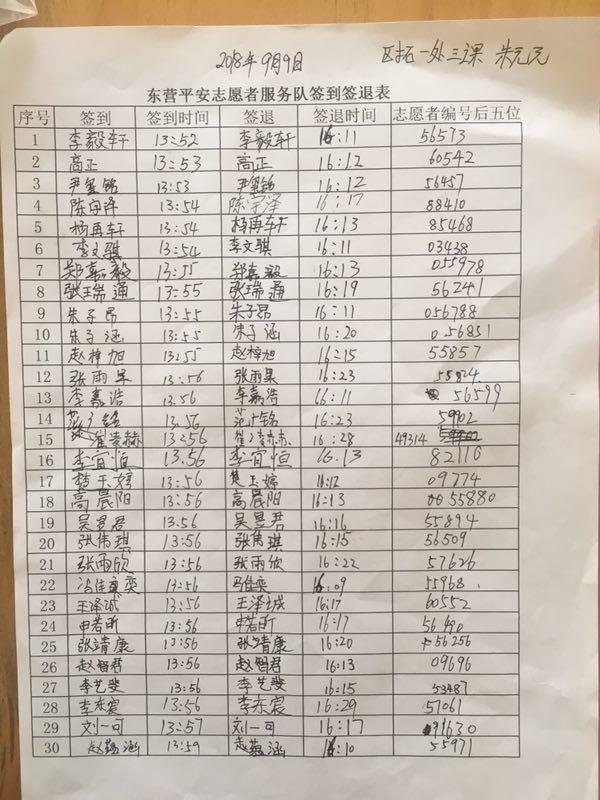 2018年9月9日 区拓一处三课 朱元元
东营平安志愿者服务队签到签退表
序号 签到 签到时间 签退 签退时间 志愿者编号后五位
1 李毅轩 13:52 李毅轩 16:11 56573
2 高正 13:53 高正 16:12 60542
3 尹玺铭 13:53 尹玺铭 16:12 56457
4 陈宇泽 13:54 陈宇泽 16:17 88410
5 杨再轩 13:54 杨再轩 16:13 85468
6 李文骐 13:54 李文骐 16:11 03438
7 郑嘉毅 13:55 郑嘉毅 16:13 055978
8 张瑞通 13:55 张瑞通 16:19 56241
9 朱子昂 13:55 朱子昂 16:11 056788
10 朱子涵 13:55 朱子涵 16:20 056851
11 赵梓旭 13:55 赵梓旭 16:15 55857
12 张雨果 13:56 张雨果 16:23 55824
13 李嘉浩 13:56 李嘉浩 16:11 56599
14 13:56 16:23 5902
15 崔凌赫 13:56 崔凌赫 16:28 49314
16 李宜恒 13.56 李宜恒 16.13 82110
17 樊玉婷 13:56 樊玉婷 16:12 09774
18 高晨阳 13:56 高晨阳 16:13 0055880
19 吴昱君 13.56 吴昱君 16:16 55894
20 张伟琪 13:56 张伟琪 16:15 56509
21 张雨欣 13:56 张雨欣 16:22 57626
22 冯佳奕 13:56 冯佳奕 16:09 55968
23 王泽诚 13:56 王泽诚 16:17 60552
24 申若昕 13:56 申若昕 16:17 56490
25 张靖康 13:56 张靖康 16:20 56256
26 赵智君 13:56 赵智君 16:13 09696
27 李艺斐 13:56 李艺斐 16:15 53487
28 李东宸 13:56 李东宸 16:29 57061
29 刘一可 13:57 刘一可 16:17 91630
30 13:59 16:10 55971